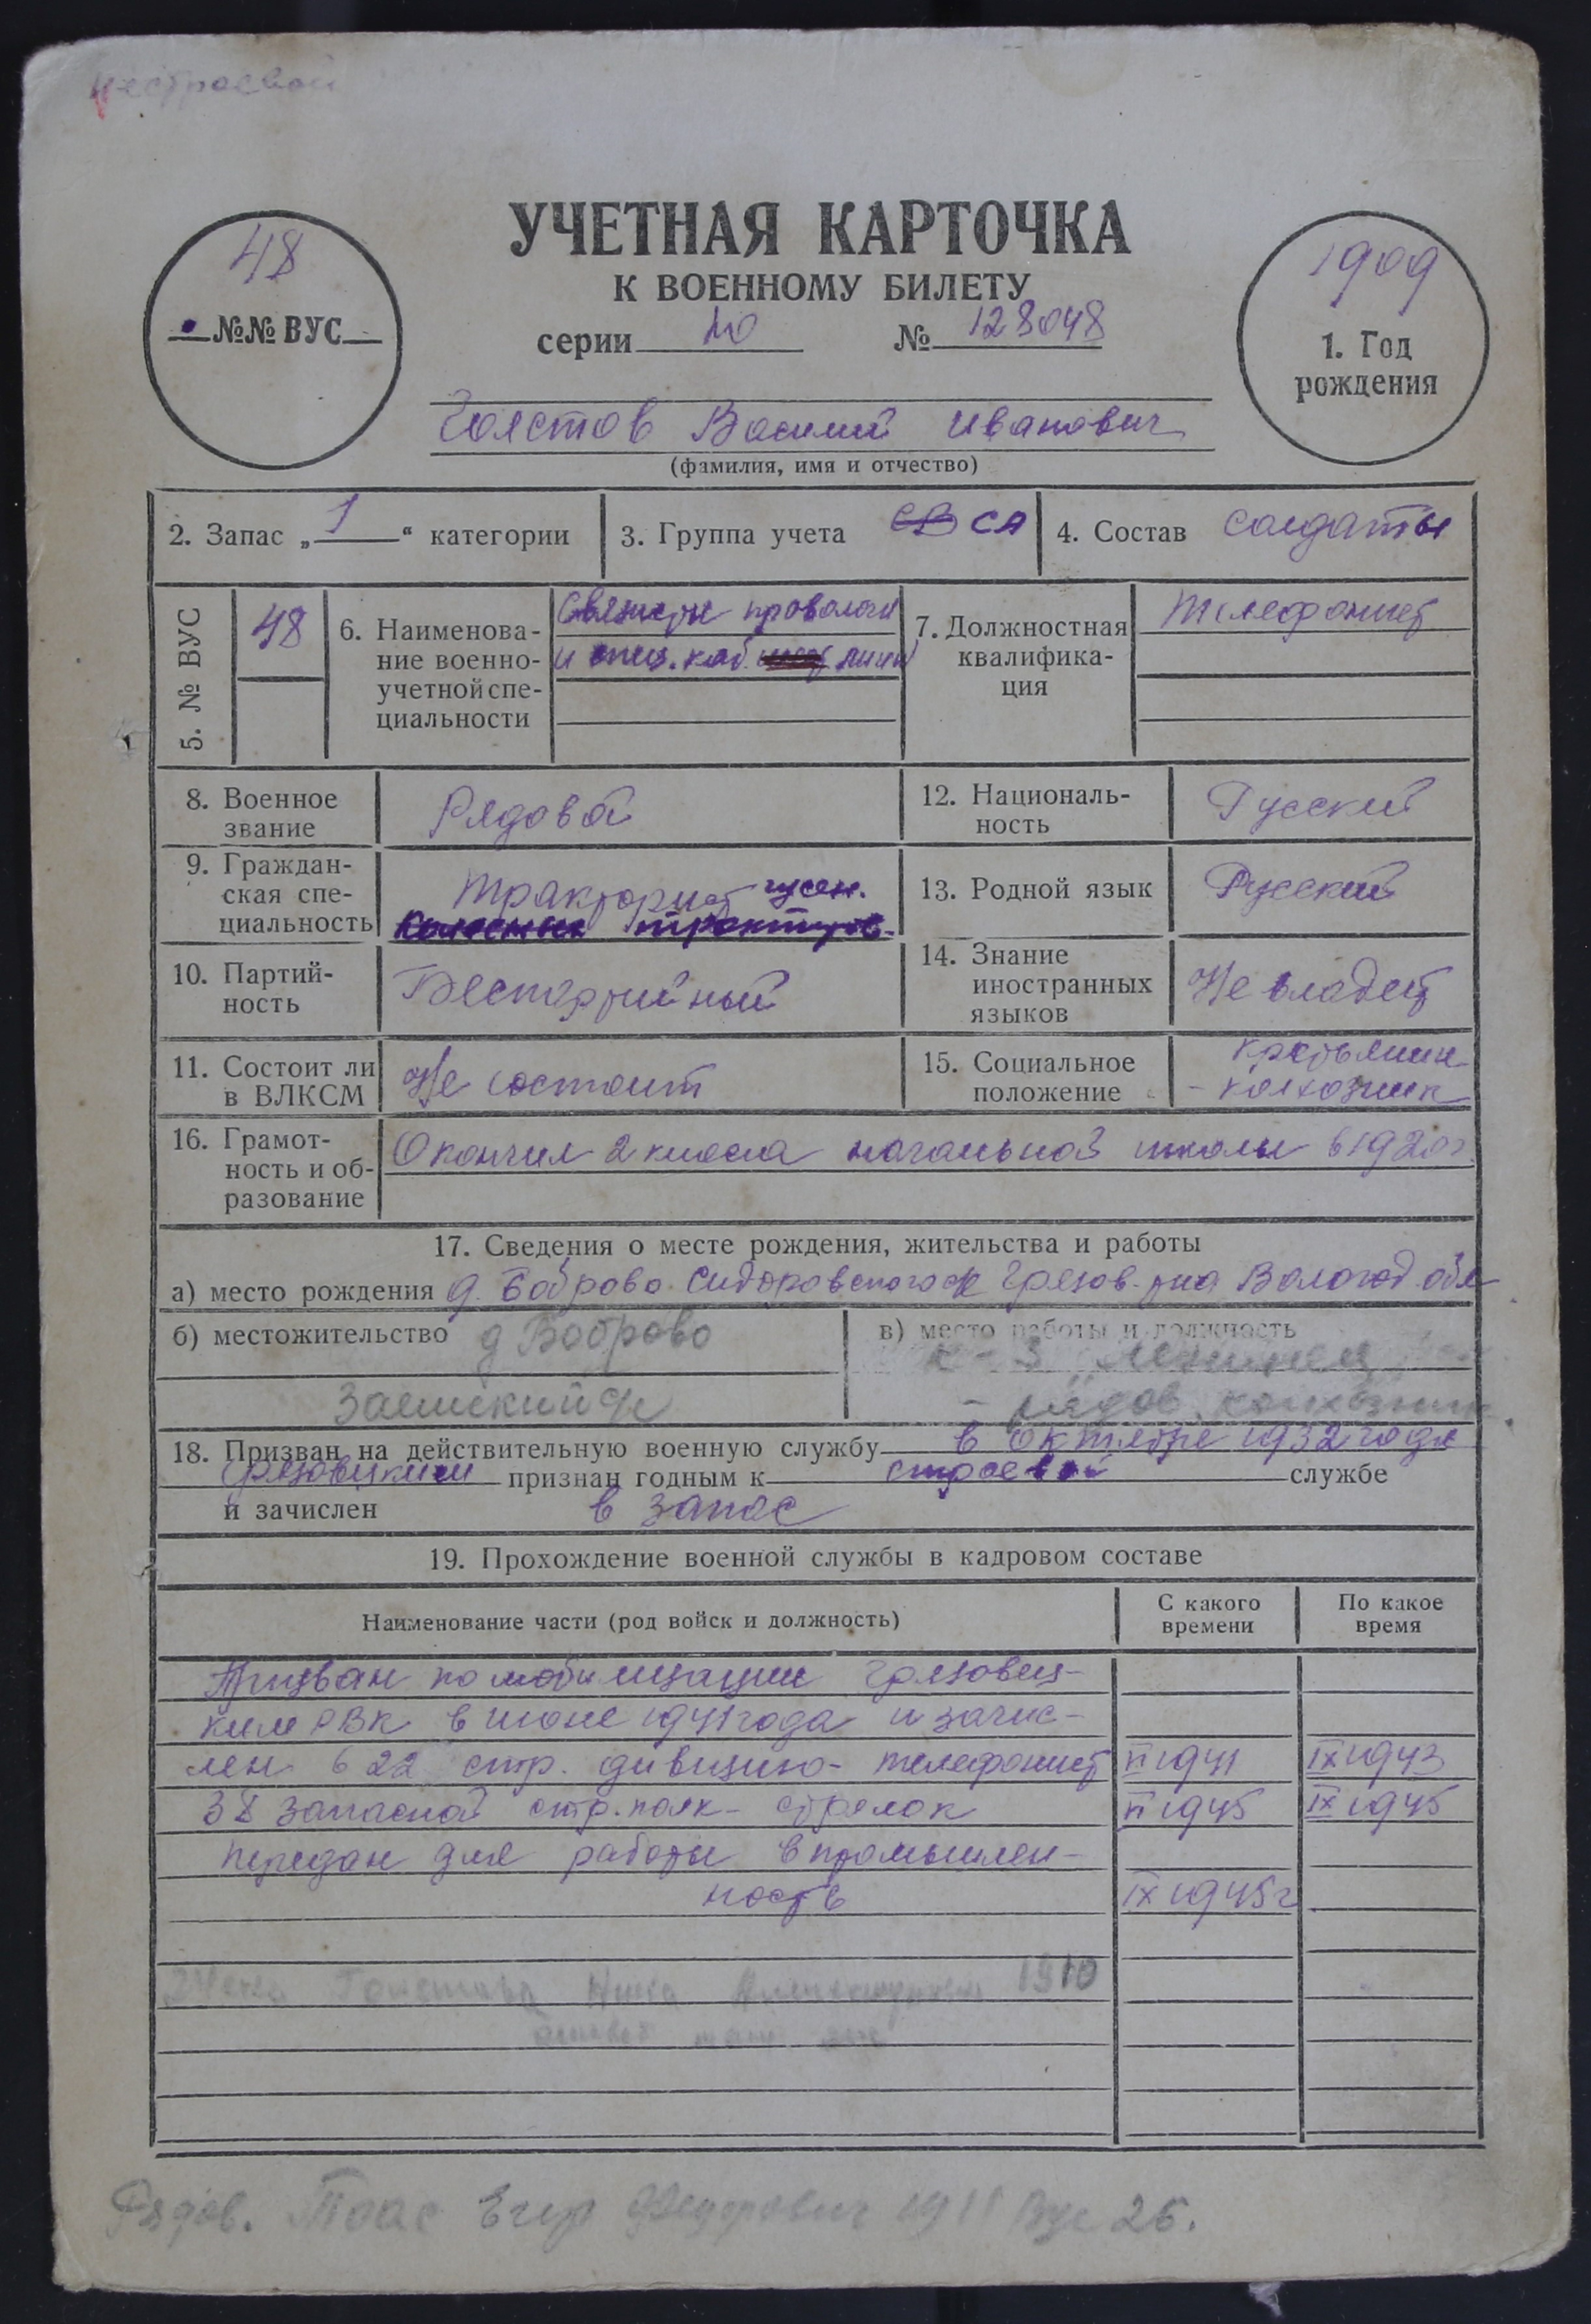 нестроевой
УЧЕТНАЯ КАРТОЧКА
К ВОЕННОМУ БИЛЕТУ
48
№№ ВУС
серии № 128048
1909
1. Год
рождения
Толстов Василий Иванович
(фамилия, имя и отчество)
2. Запас „ 1 “ категории
3. Группа учета СВ СА
4. Состав солдаты
5. № ВУС
48
6. Наименова-
ние военно-
учетной спе-
циальности
Связисты проволочн
и спец. каб. линии
7. Должностная
квалифика-
ция
телефонист
8. Военное
звание
Рядовой
12. Националь-
ность
Русский
9. Граждан-
ская спе-
циальность
Тракторист гусен.
колесных тракторов.
13. Родной язык
Русский
10. Партий-
ность
Беспартийный
14. Знание
иностранных
языков
Не владеет
11. Состоит ли
в ВЛКСМ
Не состоит
15. Социальное
положение
крестьянин
- колхозник
16. Грамот-
ность и об-
разование
Окончил 2 класса начальной школы в 1920г.
17. Сведения о месте рождения, жительства и работы
а) место рождения д. Боброво Сидоровского с/с Грязов. р-на Вологод. обл
б) местожительство д Боброво
Заемский с/с
в) место работы и должность
к-з
- рядов. колхозник.
18. Призван на действительную военную службу в октябре 1932 года
Грязовецким признан годным к строевой службе
и зачислен в запас
19. Прохождение военной службы в кадровом составе
Наименование части (род войск и должность)
С какого
времени
По какое
время
Призван по мобилизации Грязовец-
ким РВК в июне 1941 года и зачис-
лен в 22 стр. дивизию - телефонист VI 1941 IX 1943
38 запасной стр. полк - стрелок VI 1945 IX 1945
передан для работы в промышлен-
ность IX 1945 г
1910
Рядов. Егор Федорович 1911 Вус 26.